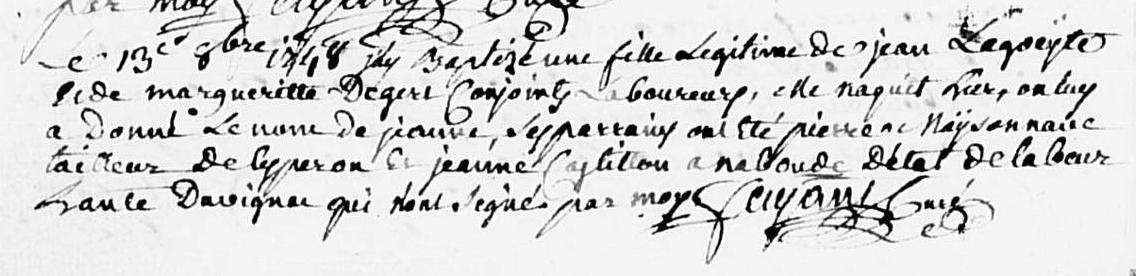 par moy Curé
Le 13e 8bre 1748 j'ay Baptizé une fille Legitime de jean Lagoeyte
Et de margueritte Degert Conjoints Laboureurs, elle naquit hier, on luy
a donné Le nom de jeanne Ses parrains ont été pierre Maysonnave
tailleur de lyperon Et jeanne Castillon a naboude détat de labeur
hante Davignac qui n'ont Signé par moy Curé